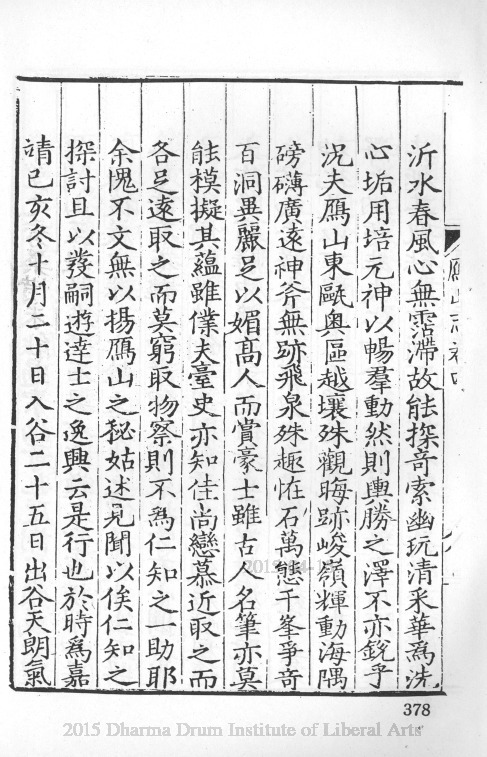 沂水春風心無霑滯故能探奇索幽玩清采華為洗
心垢用培元神以暢羣動然則輿勝之澤不亦銳乎
况夫鴈山東甌奥區越壤殊觀晦跡峻嶺輝動海隅
磅礴廣遠神斧無跡飛泉殊趣恠石萬態千峯爭奇
百洞異麗足以媚髙人而賞豪士雖古人名筆亦莫
能模擬其蘊雖僕夫臺史亦知佳尚戀慕近取之而
各足遠取之而莫窮取物察則不為仁知之一助耶
余愧不文無以揚鴈山之秘姑述見聞以俟仁知之
探討且以發嗣遊達士之逸興云是行也於時為嘉
靖己亥冬十月二十日入谷二十五日出谷天朗氣
鴈山志卷四
378
2015 Dharma Drum Institute of Liberal Arts